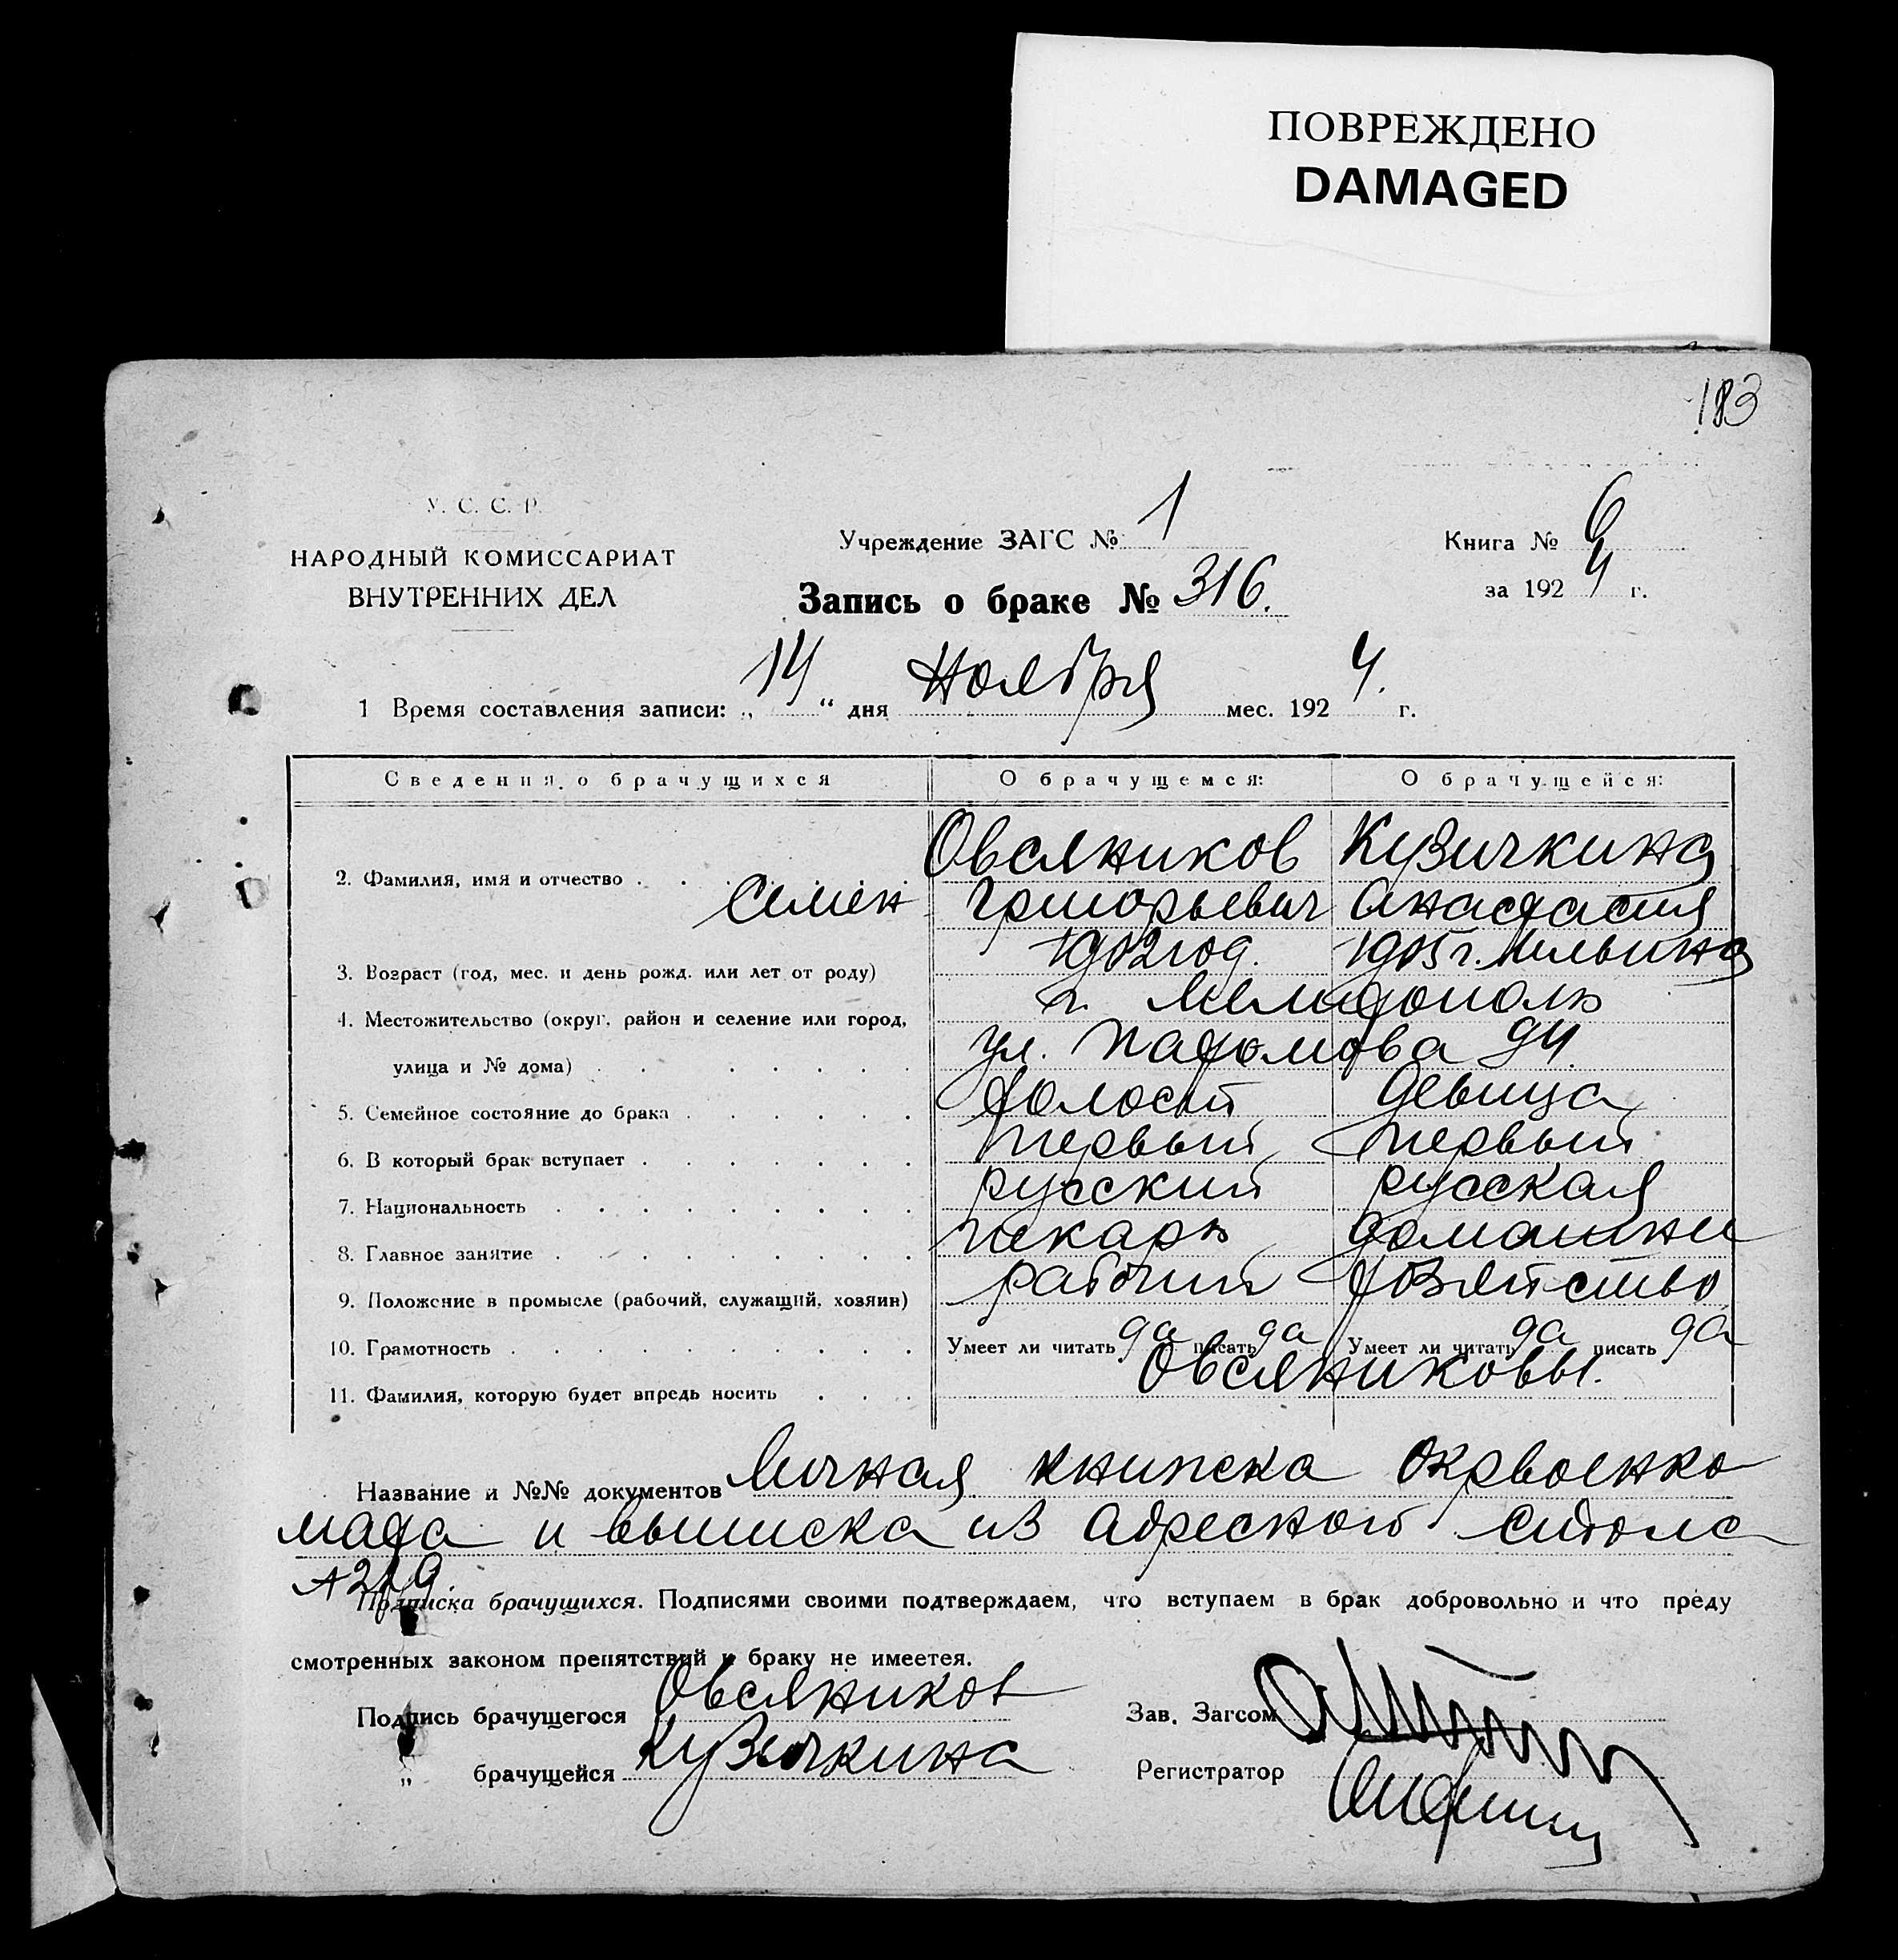 ПОВРЕЖДЕНО
DAMAGED
183
У. С. С. Р.
НАРОДНЫЙ КОМИССАРИАТ
ВНУТРЕННИХ ДЕЛ
Учреждение ЗАГС № 1
Запись о браке № 316.
Книга № 6
за 1924 г.
1 Время составления записи: „14“ дня Ноября мес. 1924. г.
Сведения о брачущихся О брачущемся: О брачущейся:
2. Фамилия, имя и отчество . . . . . . . Овсяников Кузичкина
Семен Григорьевич Анастасия
3. Возраст (год, мес. и день рожд. или лет от роду) 1902 год. 1905 г. Ильинa
4. Местожительство (округ, район и селение или город, г. Мелитополь
улица и № дома) . . . . . . . ул. 94
5. Семейное состояние до брака . . . . . . Холост девица
6. В который брак вступает . . . . . . . первый первый
7. Национальность . . . . . . . . . русский русская
8. Главное занятие . . . . . . . . пекарь домашнее
9. Положение в промысле (рабочий, служащий, хозяин) рабочий хозяйство
10. Грамотность . . . . . . . . . . Умеет ли читать да писать да Умеет ли читать да писать да
11. Фамилия, которую будет впредь носить . . . Овсяниковы.
Название и №№ документов Личная книжка Окрвоенко
мата и выписка из адресного стола
Подписка брачущихся. Подписями своими подтверждаем, что вступаем в брак добровольно и что преду
смотренных законом препятствий к браку не имеется.
Подпись брачущегося Овсяников
Зав. Загсом
„ брачущейся Кузичкина
Регистратор